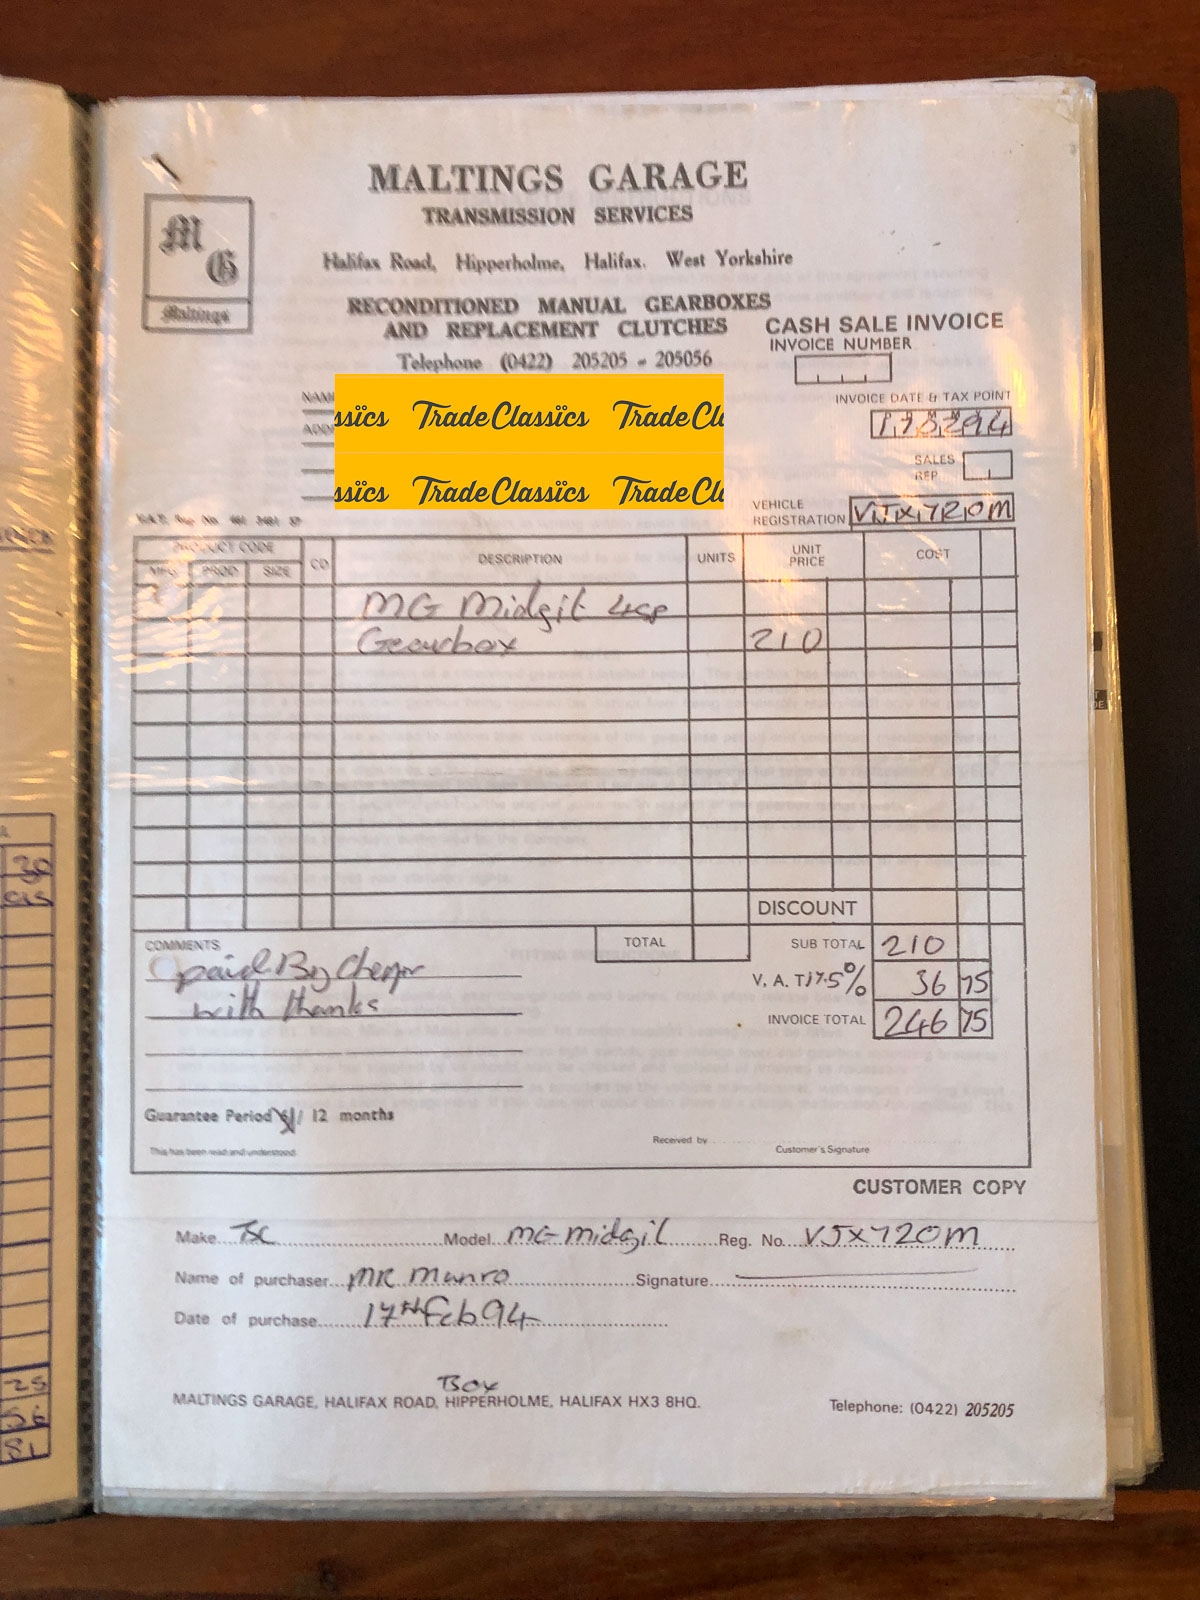 MALTINGS GARAGE
TRANSMISSION SERVICES
Halifax Road, Hipperholme, Halifax. West Yorkshire
M G
Maltings
RECONDITIONED MANUAL GEARBOXES
AND REPLACEMENT CLUTCHES
Telephone (0422) 205205 - 205056
CASH SALE INVOICE
INVOICE NUMBER
NAM
ADD
ssïcs TradeClassïcs TradeCl
ssïcs TradeClassïcs TradeCl
INVOICE DATE & TAX POINT
SALES
REP
VEHICLE
REGISTRATION VJX720M
V.A.T. Reg. No.
PRODUCT CODE
MFG PROD SIZE CD DESCRIPTION UNITS UNIT PRICE COST
MG Midgit 4sp
Gearbox 210
DISCOUNT
COMMENTS TOTAL SUB TOTAL 210
paid By Cheqr
with thanks
V.A.T 17.5% 36 75
INVOICE TOTAL 246 75
Guarantee Period 6 / 12 months
This has been read and understood.
Received by
Customer's Signature
CUSTOMER COPY
Make Model MG midgit Reg. No. VJX720M
Name of purchaser MR Munro Signature
Date of purchase 17th Feb 94
Box
MALTINGS GARAGE, HALIFAX ROAD, HIPPERHOLME, HALIFAX HX3 8HQ. Telephone: (0422) 205205
25
56
81